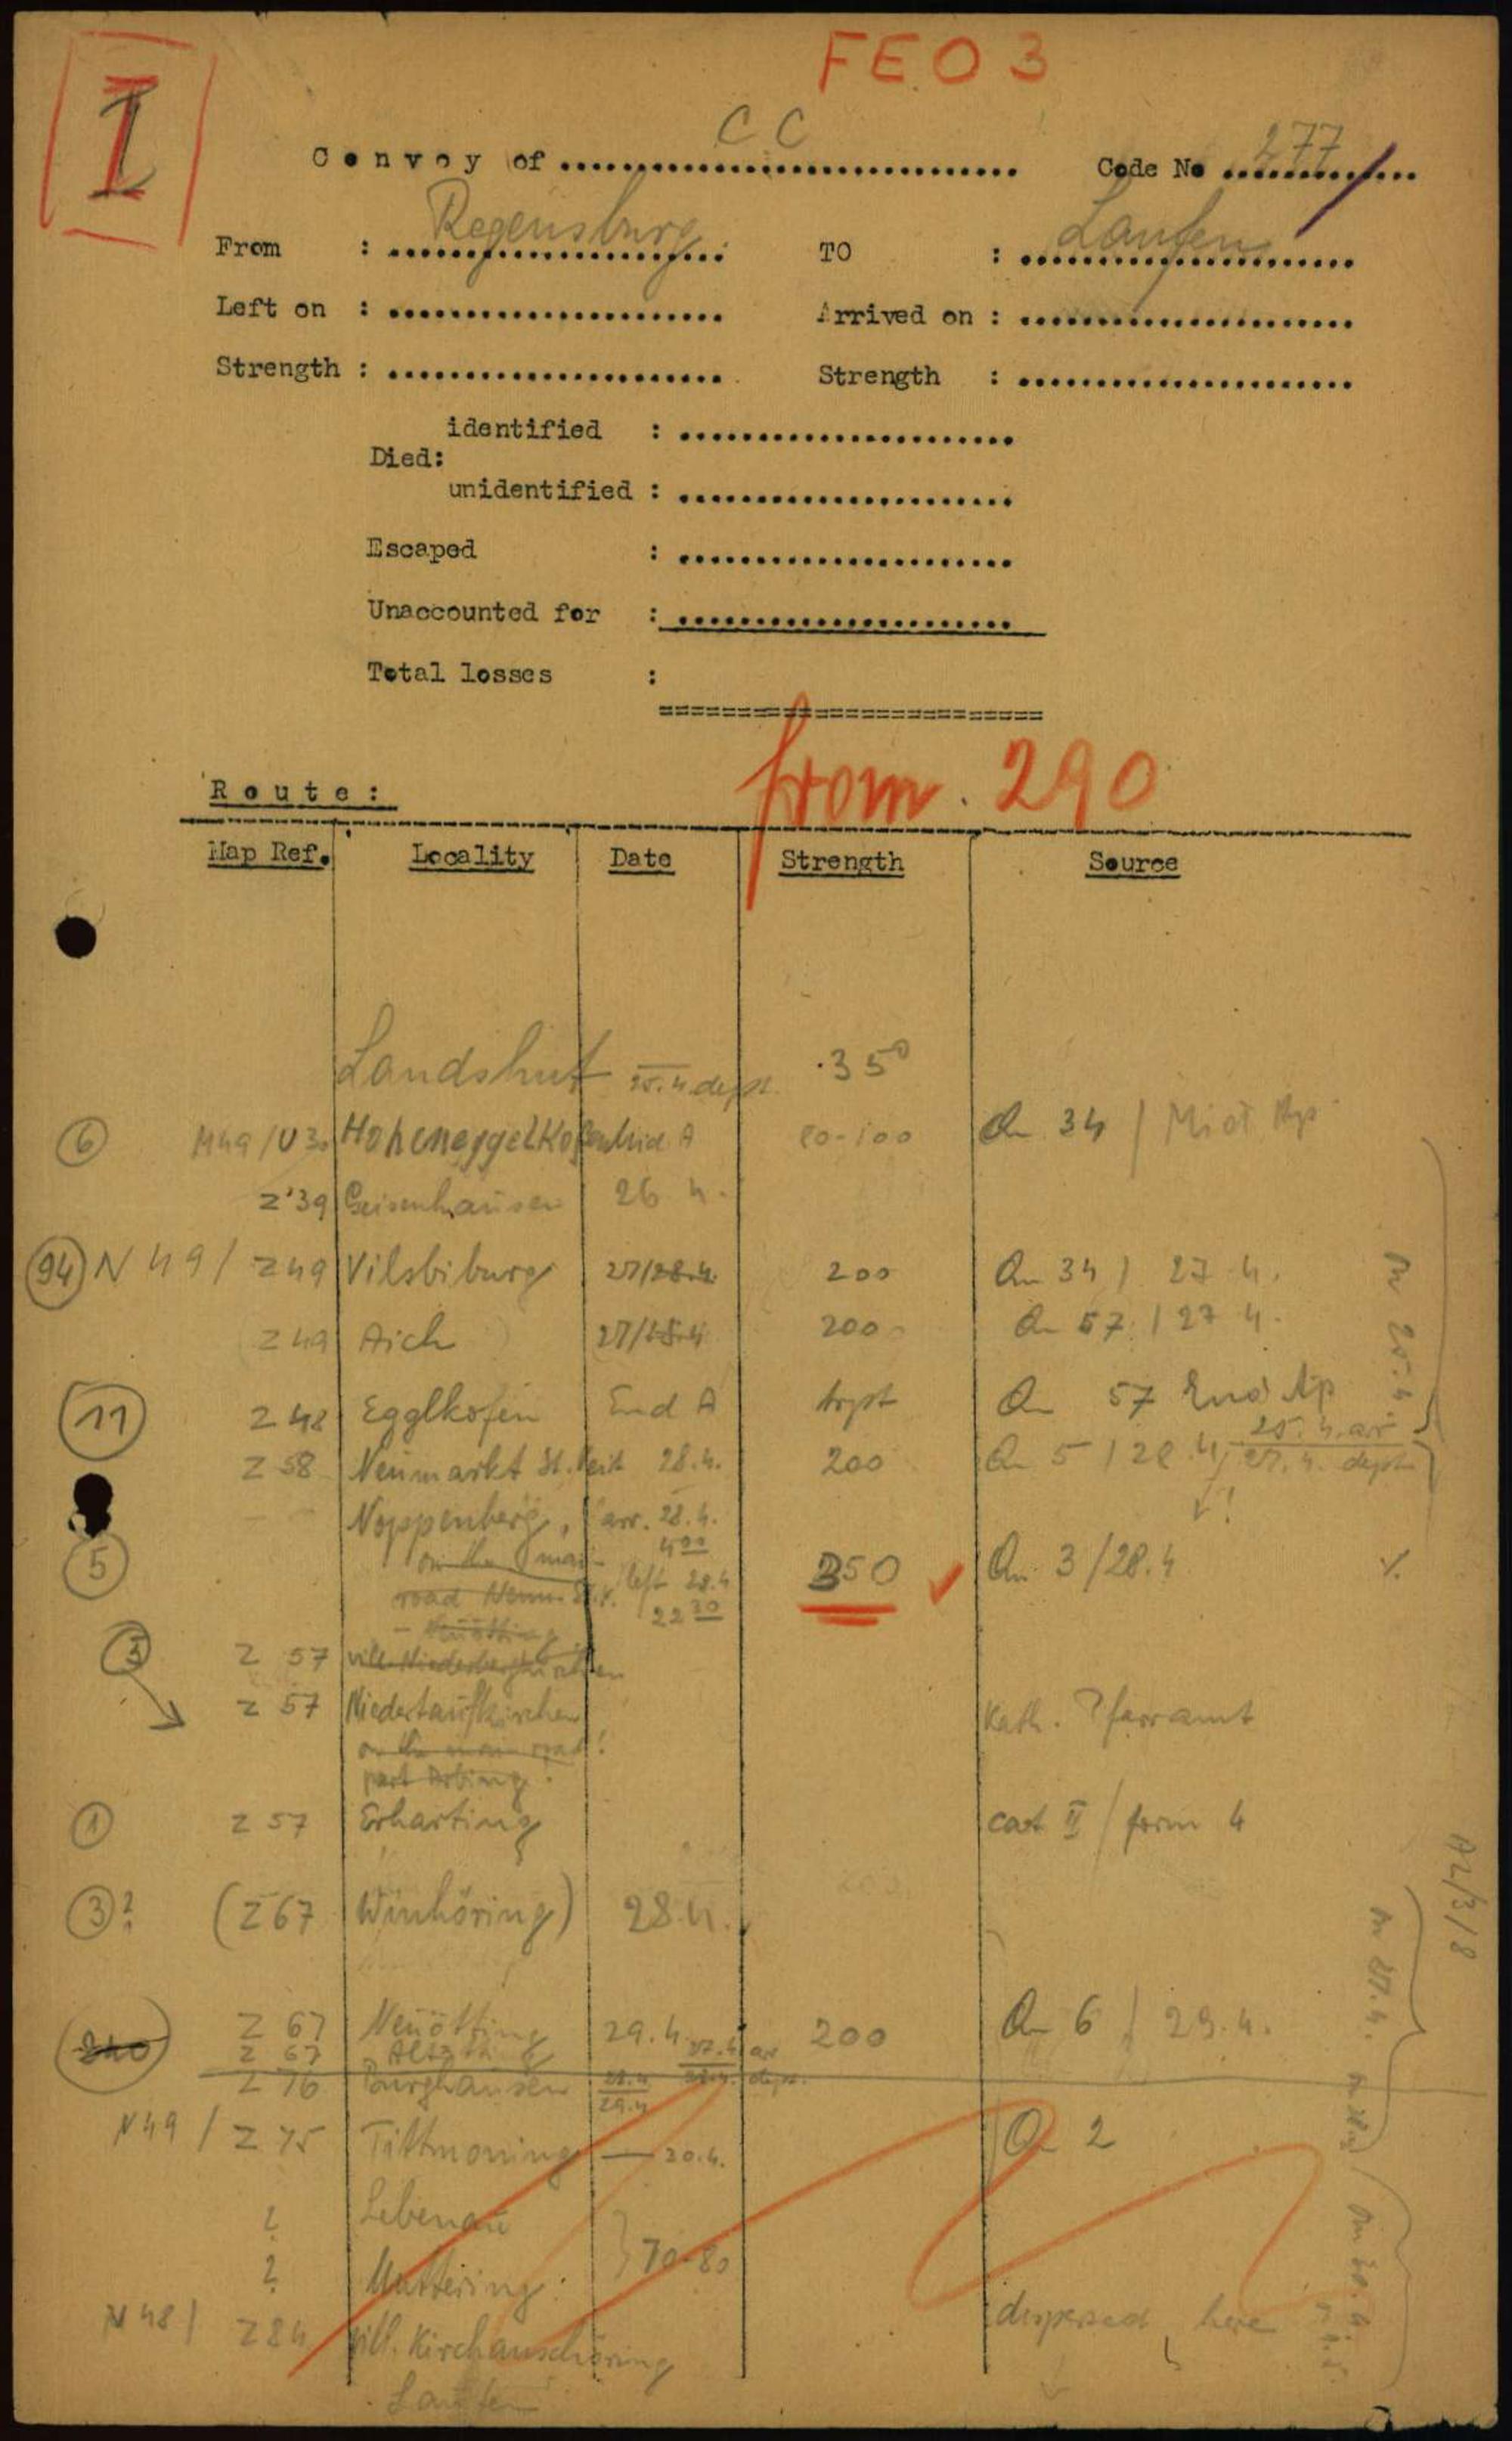 FEO 3
I
Convoy of .......... CC .......... Code No .... 277 ....
From : Regensburg TO : Laufen
Left on : .......... Arrived on : ..........
Strength : .......... Strength : ..........
identified : ..........
Died:
unidentified : ..........
Escaped : ..........
Unaccounted for : ..........
Total losses :
from 290
Route :
Map Ref. Locality Date Strength Source
Landshut 25.4 dept. 350
6 M49/U30 Hoheneggelkofen Mid A 80-100 Qu 34 /
Z 39 Geisenhausen 26 4.
94 N 49 / Z49 Vilsbiburg 27/28.4. 200 Qu 34 / 27.4.
Z 49 Aich 27/28.4 200 Qu 57 / 27 4.
11 Z 48 Egglkofen End A trspt Qu 57 End Ap
25.4. arr
Z 58 Neumarkt St. Veit 28.4. 200 Qu 5 / 28.4, 27.4. dept
Noppenberg, arr. 28.4.
on the main 400
5 left 28.4 350 Qu 3 / 28.4
road Neum. St. V. 22 30
- Neuötting
3 Z 57 vill.
Z 57 Niedertaufkirchen Kath. Pfarramt
on the main road!
part Erbing.
1 Z 57 Erharting cat II / form 4
3? (Z 67 Winhöring) 28.4.
AL/3/8
Z 67 Neuötting 29.4. 200 Qu 6 / 29.4.
Z 67 Altötting 27.4 arr
Z 76 Burghausen 28.4 dept.
29.4
N49 / Z 75 Tittmoning — 30.4. Qu 2
? Lebenau
70-80
?
N 48 / Z 84 vill. Kirchanschöring dispersed here
Laufen